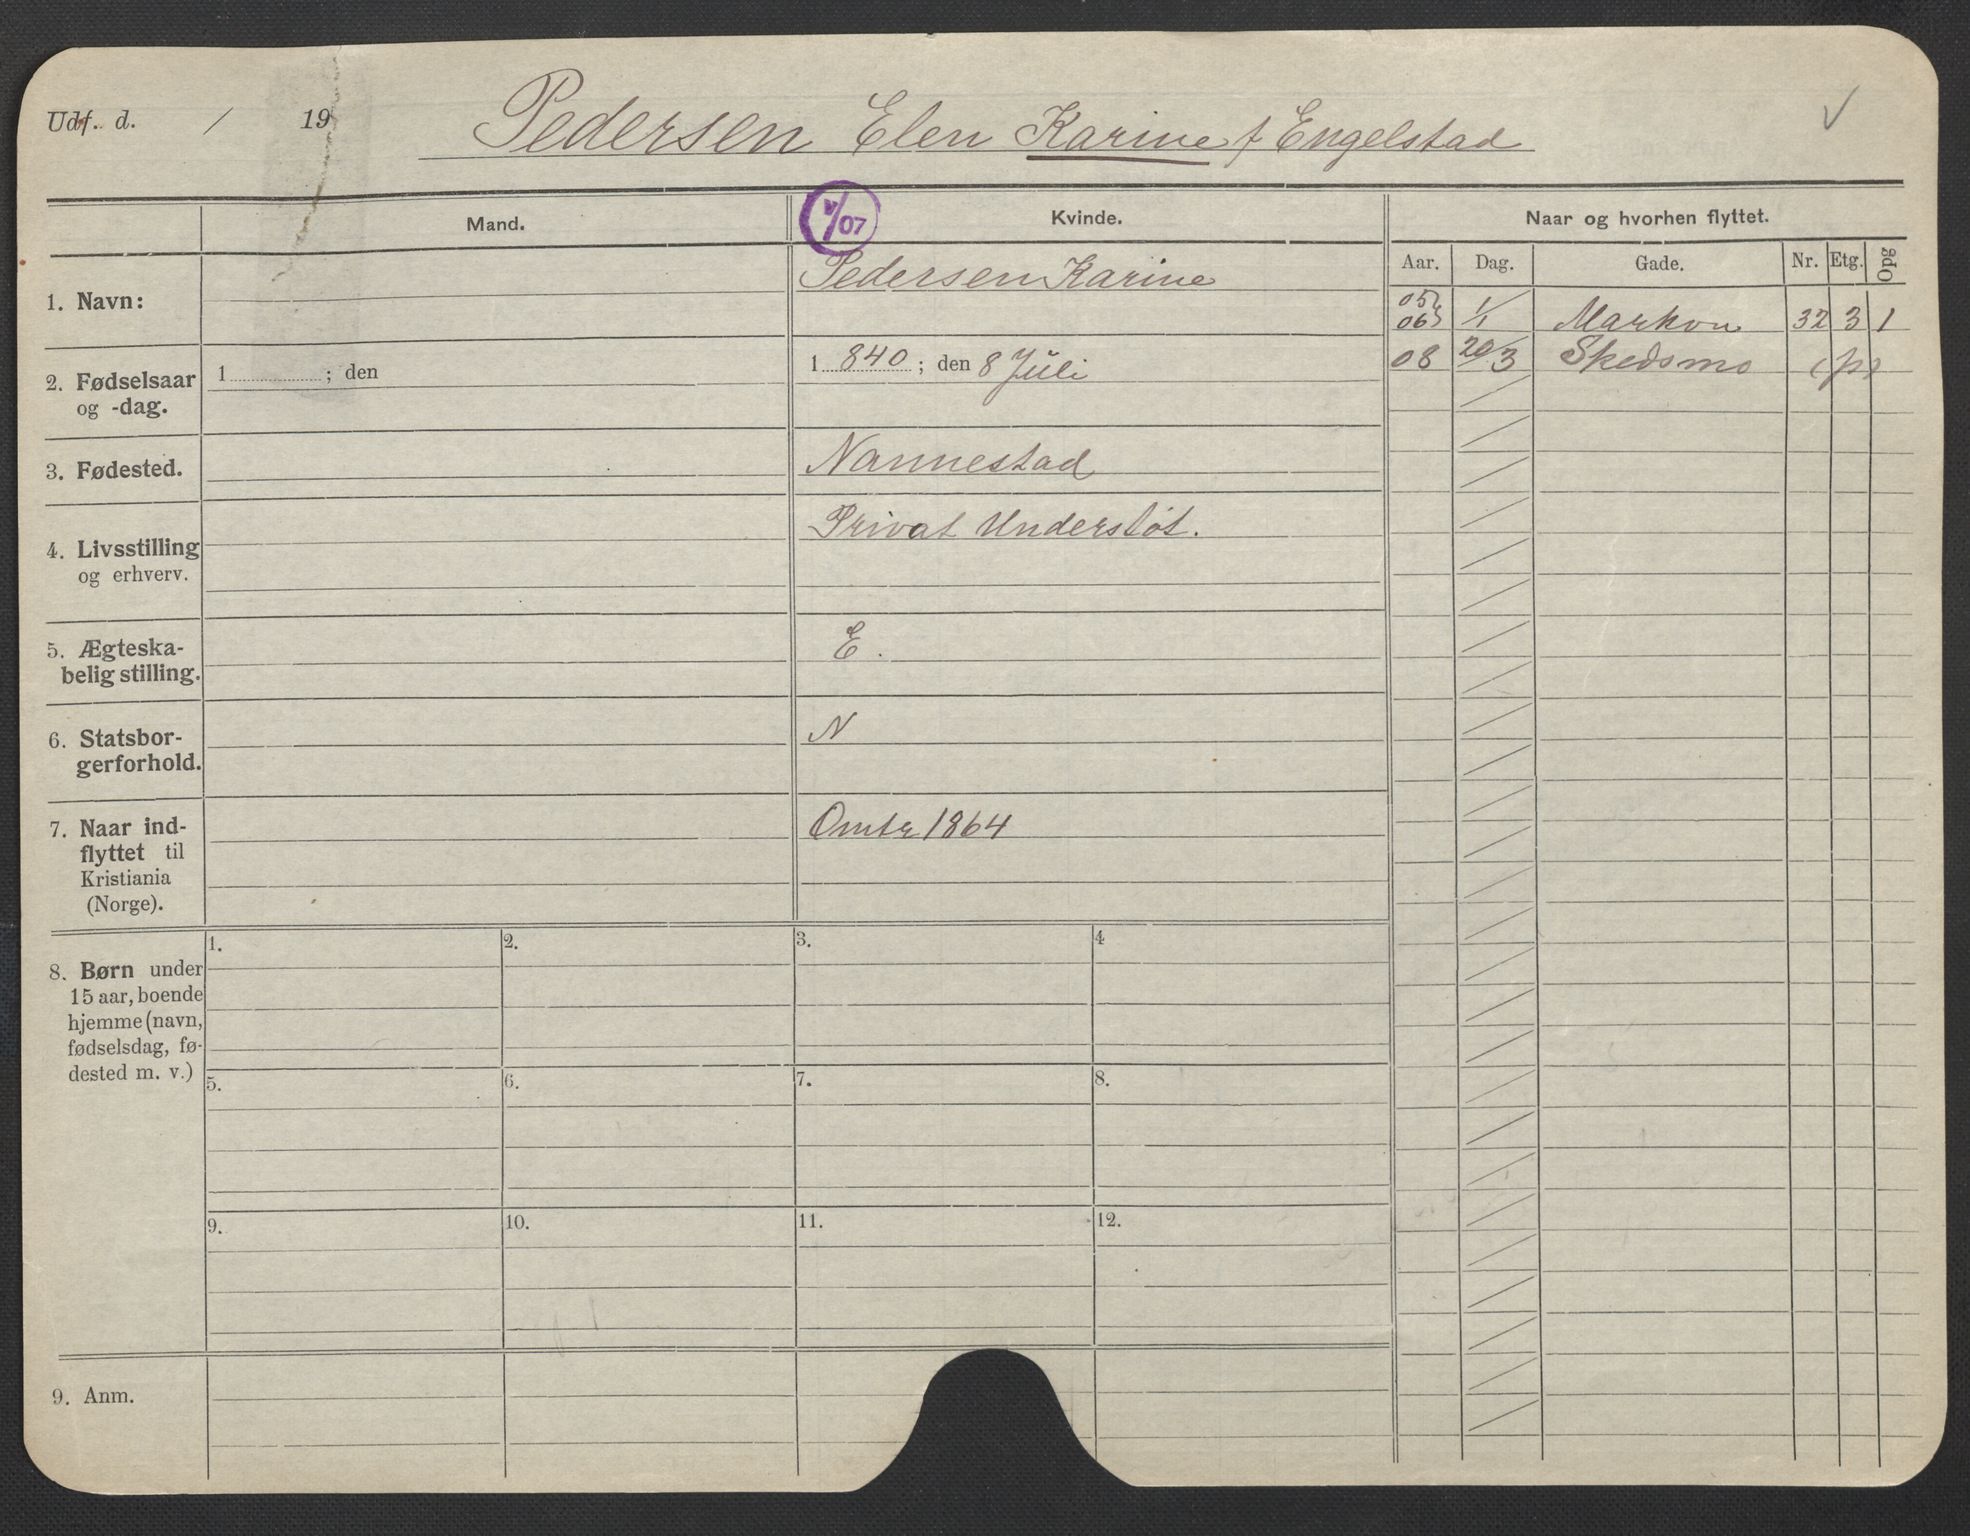 Udf. d. / 19
Pedersen Elen Karine f Engelstad
Mand.
Kvinde.
Naar og hvorhen flyttet.
Aar. Dag. Gade. Nr. Etg. Opg
1. Navn:
Pedersen Karine
05
06 1/1 Markvn 32 3 1
08 20/3 Skedsmo (p)
2. Fødselsaar
og -dag.
1 ; den
1 840 ; den 8 Juli
3. Fødested.
Nannestad
4. Livsstilling
og erhverv.
Privat Understøt.
5. Ægteska-
belig stilling.
E.
6. Statsbor-
gerforhold.
N
7. Naar ind-
flyttet til
Kristiania
(Norge).
Omtr 1864
8. Børn under
15 aar, boende
hjemme (navn,
fødselsdag, fø-
dested m. v.)
1. 2. 3. 4
5. 6. 7. 8.
9. 10. 11. 12.
9. Anm.